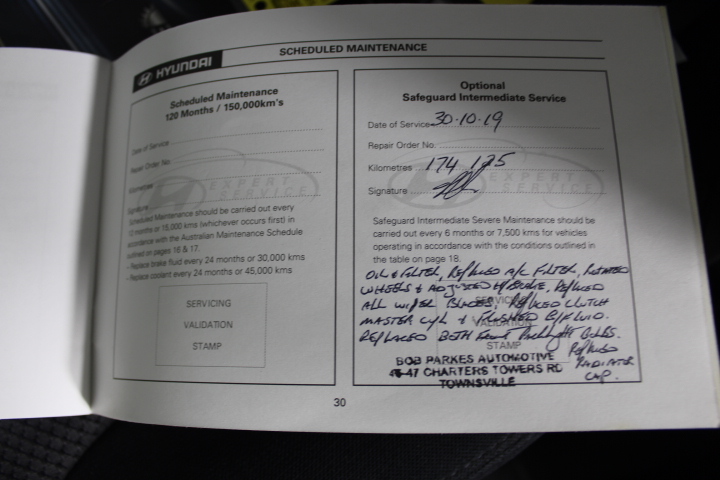 HYUNDAI
SCHEDULED MAINTENANCE
Scheduled Maintenance
120 Months / 150,000km's
Date of Service
Repair Order No.
Kilometres
Signature
EXPERT
SERVICE
Scheduled Maintenance should be carried out every
12 months or 15,000 kms (whichever occurs first) in
accordance with the Australian Maintenance Schedule
outlined on pages 16 & 17.
- Replace brake fluid every 24 months or 30,000 kms
- Replace coolant every 24 months or 45,000 kms
SERVICING
VALIDATION
STAMP
Optional
Safeguard Intermediate Service
Date of Service 30-10-19
Repair Order No.
Kilometres 174 125
Signature
EXPERT
SERVICE
Safeguard Intermediate Severe Maintenance should be
carried out every 6 months or 7,500 kms for vehicles
operating in accordance with the conditions outlined in
the table on page 18.
OIL & FILTER, REPLACED A/C FILTER, ROTATED
WHEELS & ADJUSTED H/BRAKE, REPLACED
ALL WIPER BLADES, REPLACED CLUTCH
MASTER CYL & FLUSHED B/FLUID.
REPLACED BOTH FRONT BULBS.
REPLACED
RADIATOR
CAP.
SERVICING
VALIDATION
STAMP
BOB PARKES AUTOMOTIVE
45-47 CHARTERS TOWERS RD
TOWNSVILLE
30